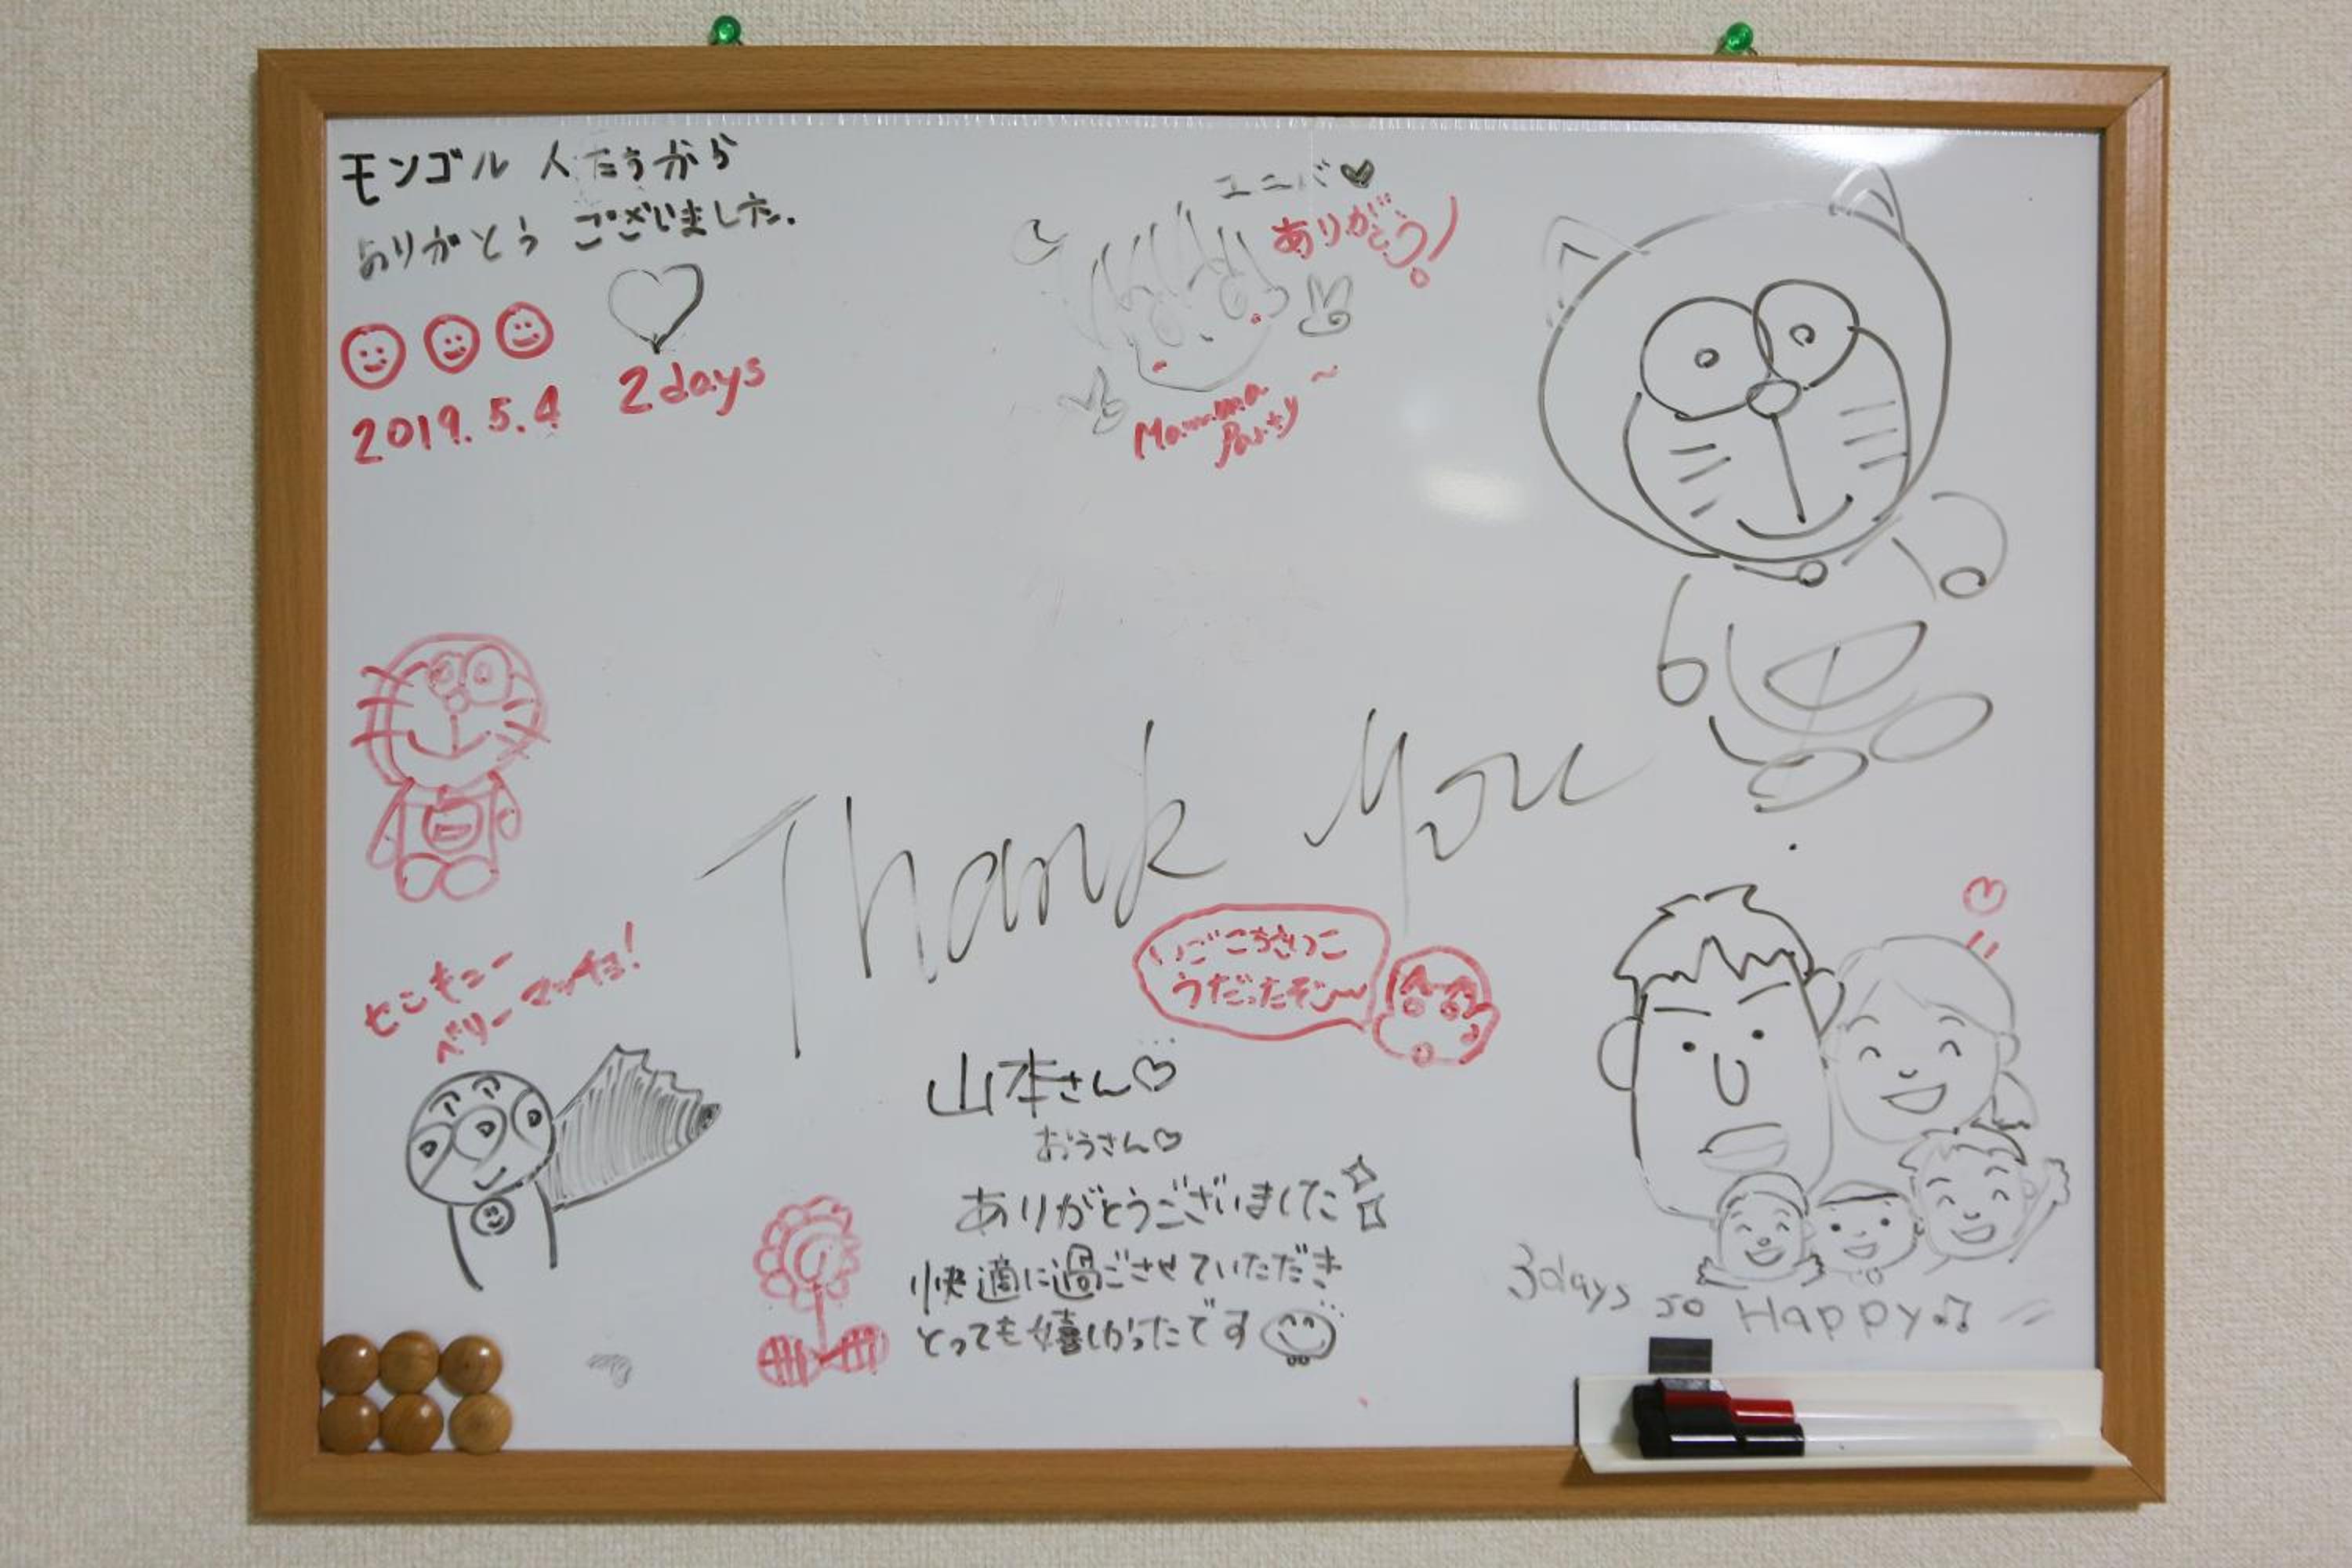 モンゴル 人たうから
ありがとう ございました.
2019.5.4 2days
ユニバ♥
ありがとう!
Mamma
Party ~
Thank You
せんキュー
ベリーマッチョ!
いごこちさいこ
うだったぞ〜
山本さん♡
おうさん♡
ありがとうございました
快適に過ごさせていただき
とっても嬉しかったです
3days so Happy♫